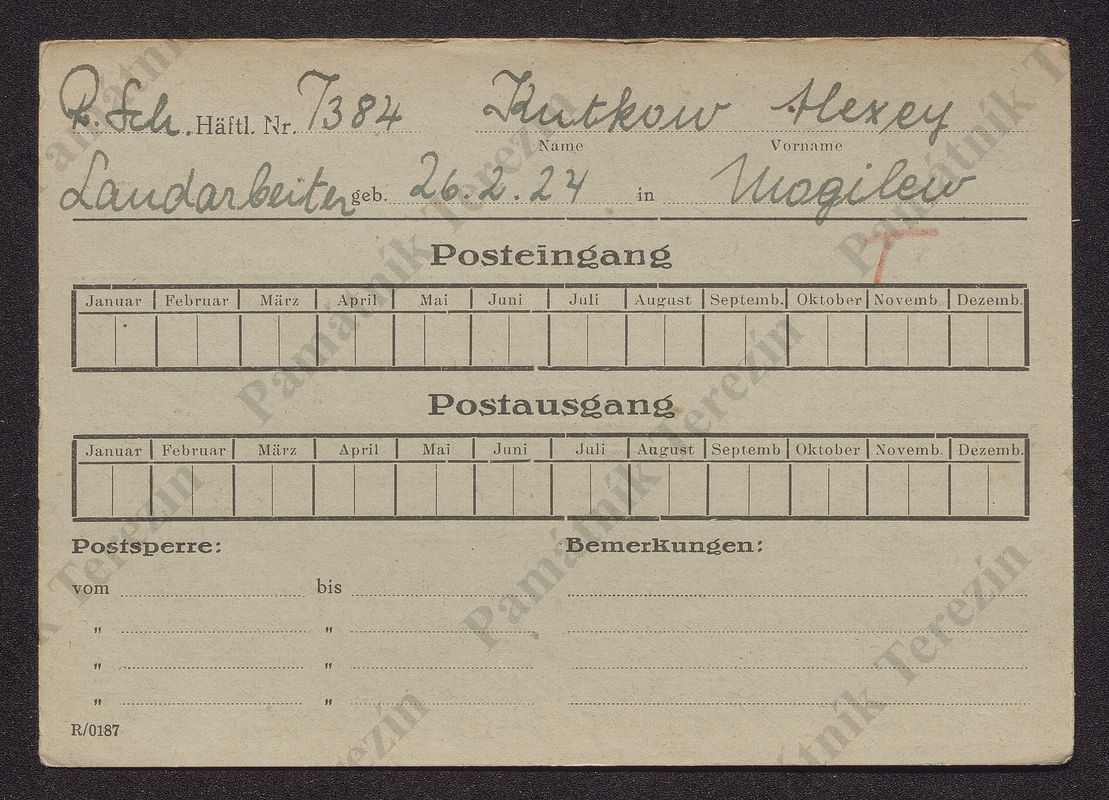 R. Sch. Häftl. Nr. 7384 Kutkow Alexey
Name Vorname
Landarbeiter geb. 26.2.24 in Mogilew
T
Posteingang
Januar Februar März April Mai Juni Juli August Septemb. Oktober Novemb. Dezemb.
Postausgang
Januar Februar März April Mai Juni Juli August Septemb Oktober Novemb. Dezemb.
Postsperre: Bemerkungen:
vom bis
" "
" "
" "
R/0187
Památník Terezín